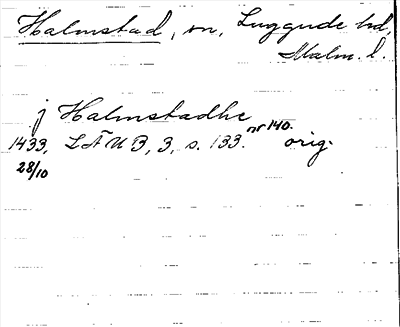 Halmstad, sn, Luggude hd,
Malm. l.
j Halmstadhe
1433, LÄUB, 3, s. 133. nr 140. orig.
28/10